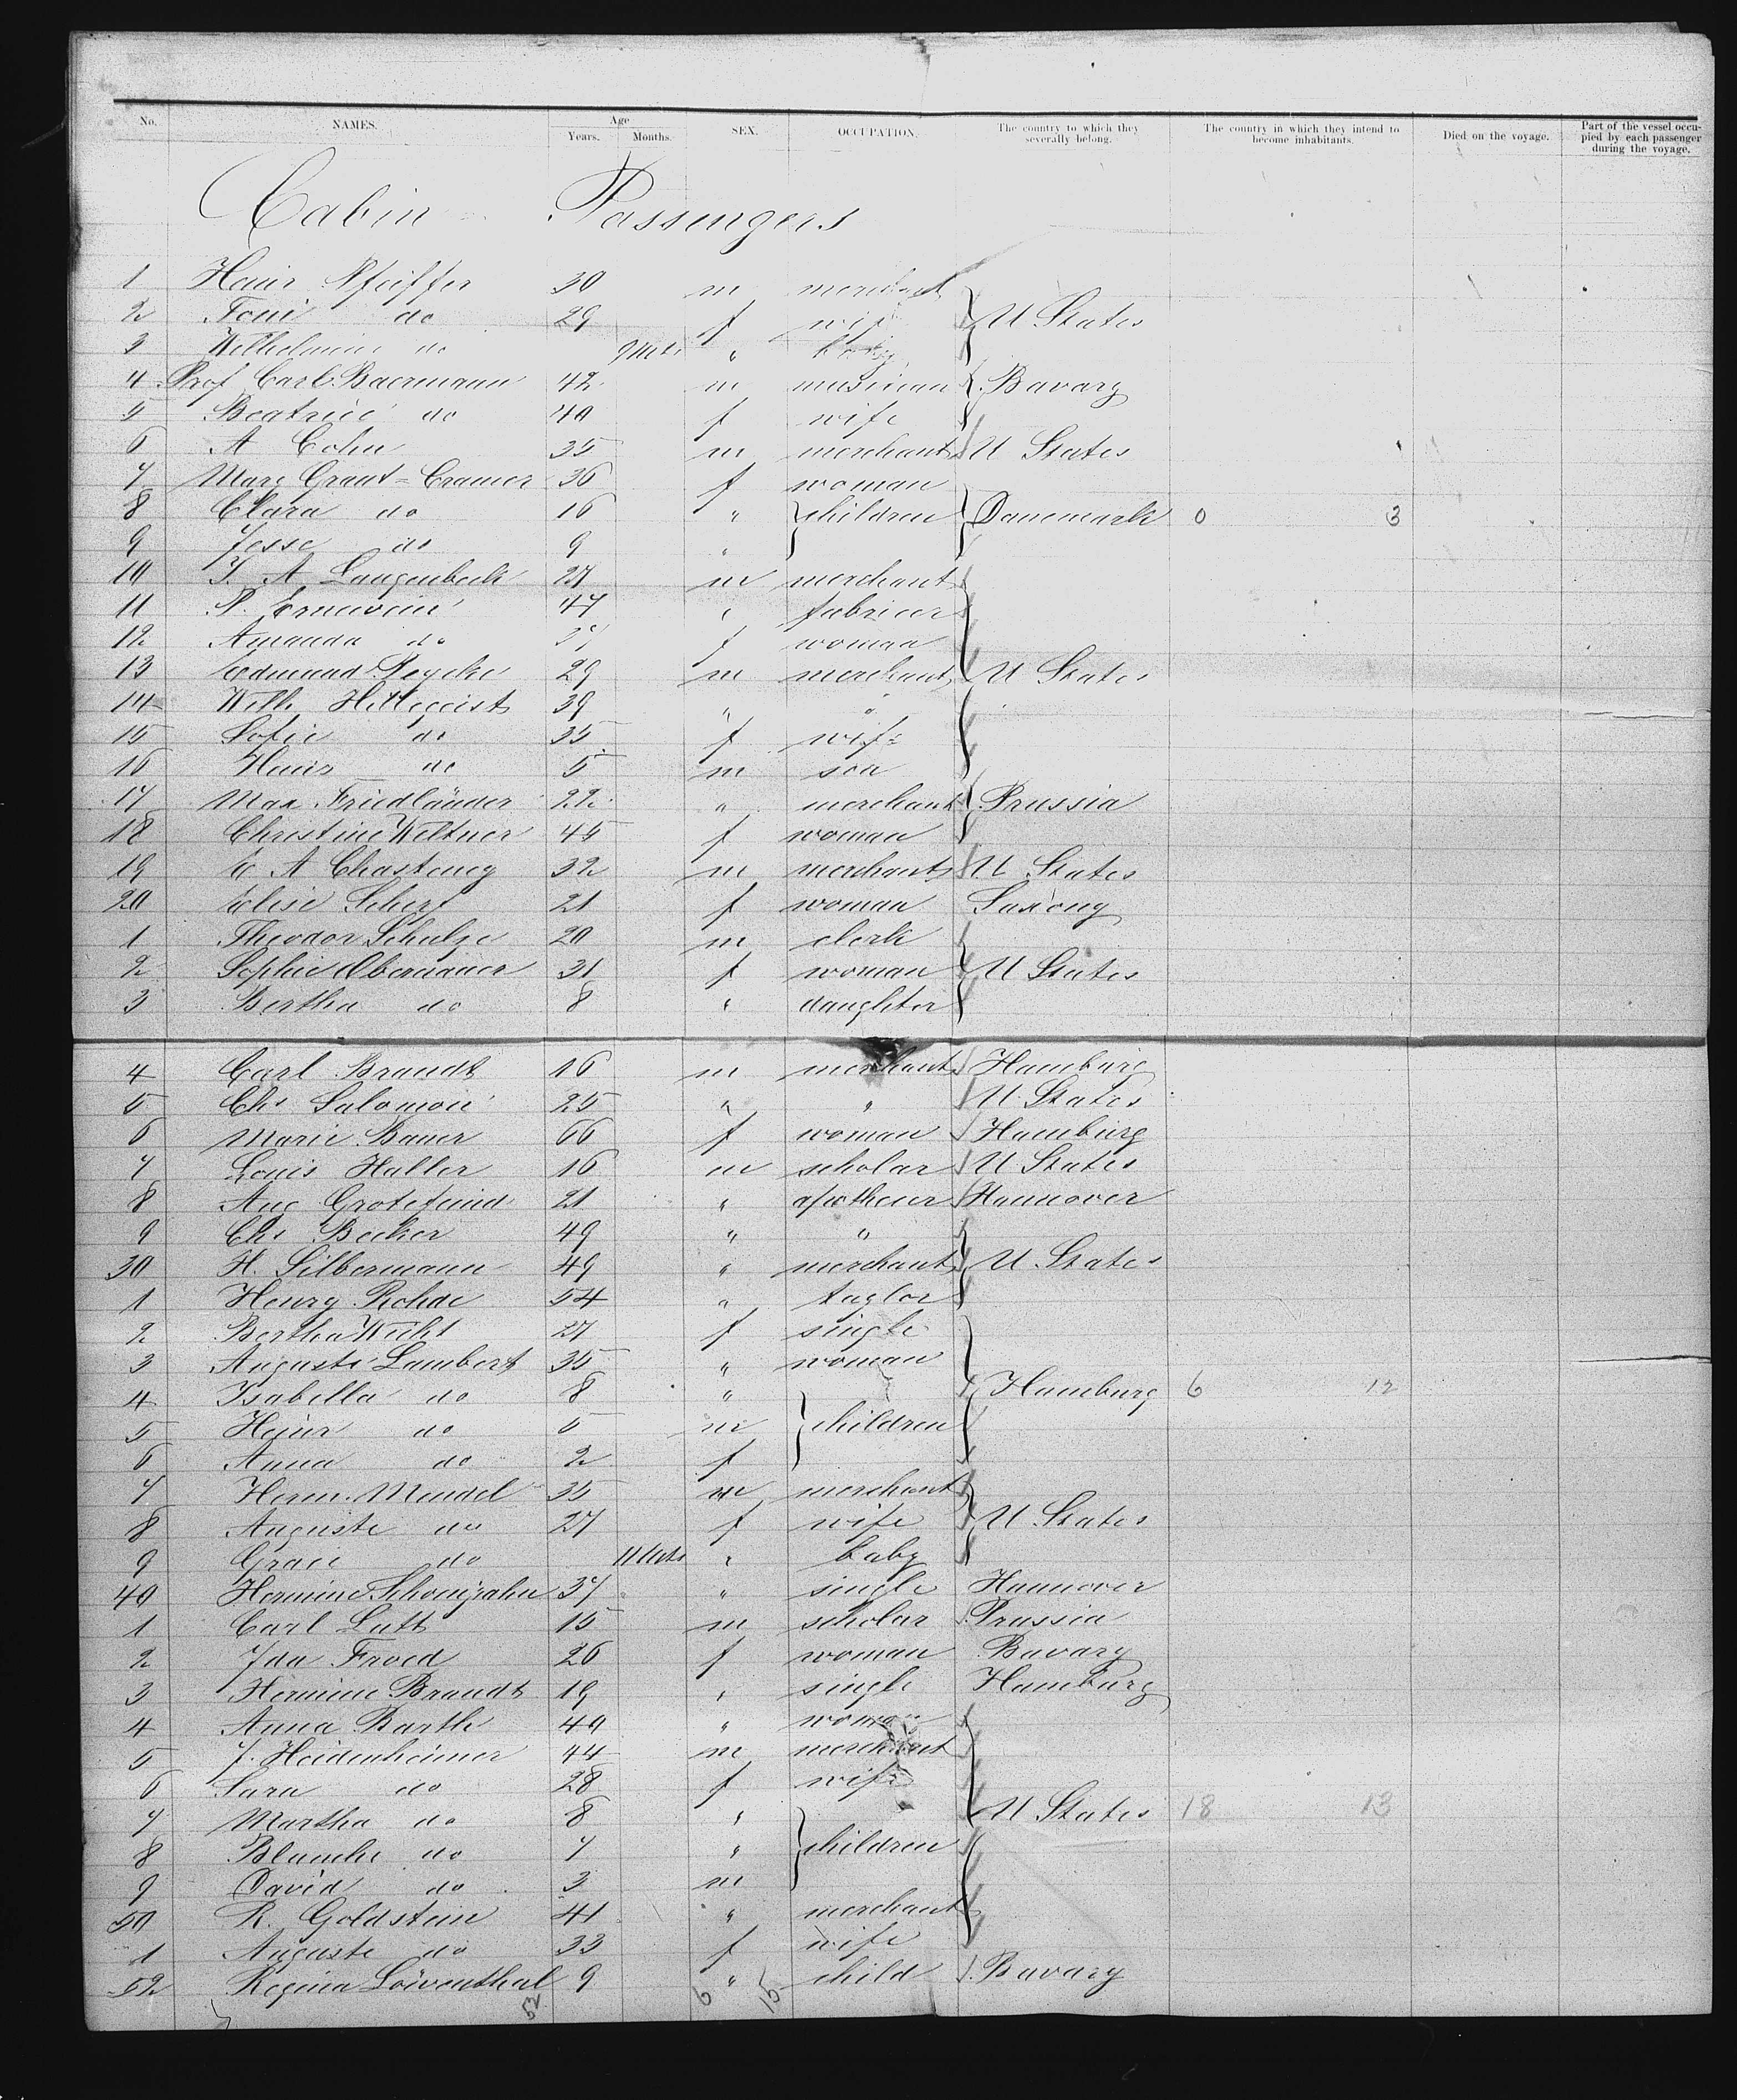 No. NAMES. Age Years. Months. SEX. OCCUPATION. The country to which they severally belong. The country in which they intend to become inhabitants. Died on the voyage. Part of the vessel occupied by each passenger during the voyage.
Cabin Passengers
1 Heinr Pfeiffer 30 m merchant
2 Toni do 29 f wife U States
3 Wilhelmine do 9 Mts " baby
4 Prof Carl Baermann 42 m musician Bavary
5 Beatrice do 40 f wife
6 A Cohn 35 m merchant U States
7 Mary Grant=Cramer 36 f woman
8 Clara do 16 " children Danemark 0 3
9 Jesse do 9 "
10 J. A Langenbeck 27 m merchant
11 P. 47 " fabricer
12 Amanda do f woman
13 Edmund Peycke 29 m merchant U States
14 Wilh 39 " "
15 Sofie do 35 f wife
16 Hans do 5 m son
17 Max Friedländer 22 " merchant Prussia
18 Christine Weltner 45 f woman
19 E A Chasteney 32 m merchant U States
20 Elise Scherf 21 f woman Saxony
1 Theodor Schulze 20 m clerk
2 Sophie Obermauer 31 f woman U States
3 Bertha do 8 " daughter
4 Carl Brandt 16 m merchant Hamburg
5 Chs Salomon 25 " " U States
6 Marie Bauer 66 f woman Hamburg
7 Louis Haller 16 m scholar U States
8 Aug Grotefend 21 " apothecer Hannover
9 Chs Becker 49 " "
30 H. Silbermann 49 " merchant U States
1 Henry Rohde 54 " taylor
2 Bertha Wicht 27 f single
3 Auguste Lambert 35 " woman
4 Isabella do 8 " Hamburg 6 12
5 Heinr do 5 m children
6 Anna do 2 f
7 Herm. Mendel 35 m merchant
8 Auguste do 27 f wife U States
9 Grace do 11 Mts " baby
40 Hermine Schonjahn 37 " single Hannover
1 Carl Lutt 15 m scholar Prussia
2 Ida Froed 26 f woman Bavary
3 Hermine Brandt 19 " single Hamburg
4 Anna Barth 40 " woman
5 J. Heidenheimer 44 m merchant
6 Sara do 28 f wife
7 Martha do 8 " U States 18 13
8 Blanche do 7 " children
9 David do 3 m
50 R. Goldstein 41 " merchant
1 Auguste do 33 f wife
52 Regina Löwenthal 9 " child Bavary
52 6 15